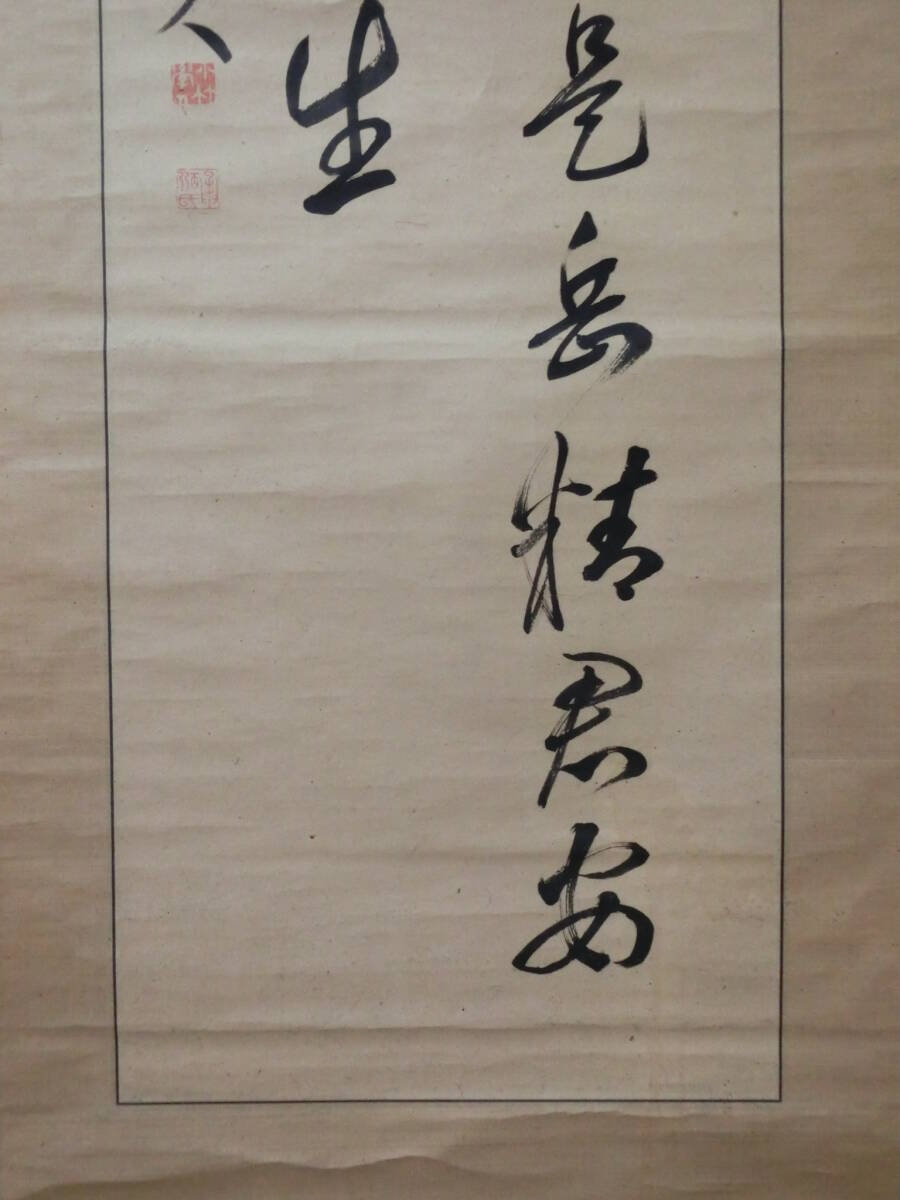 是岳精君安
生
人